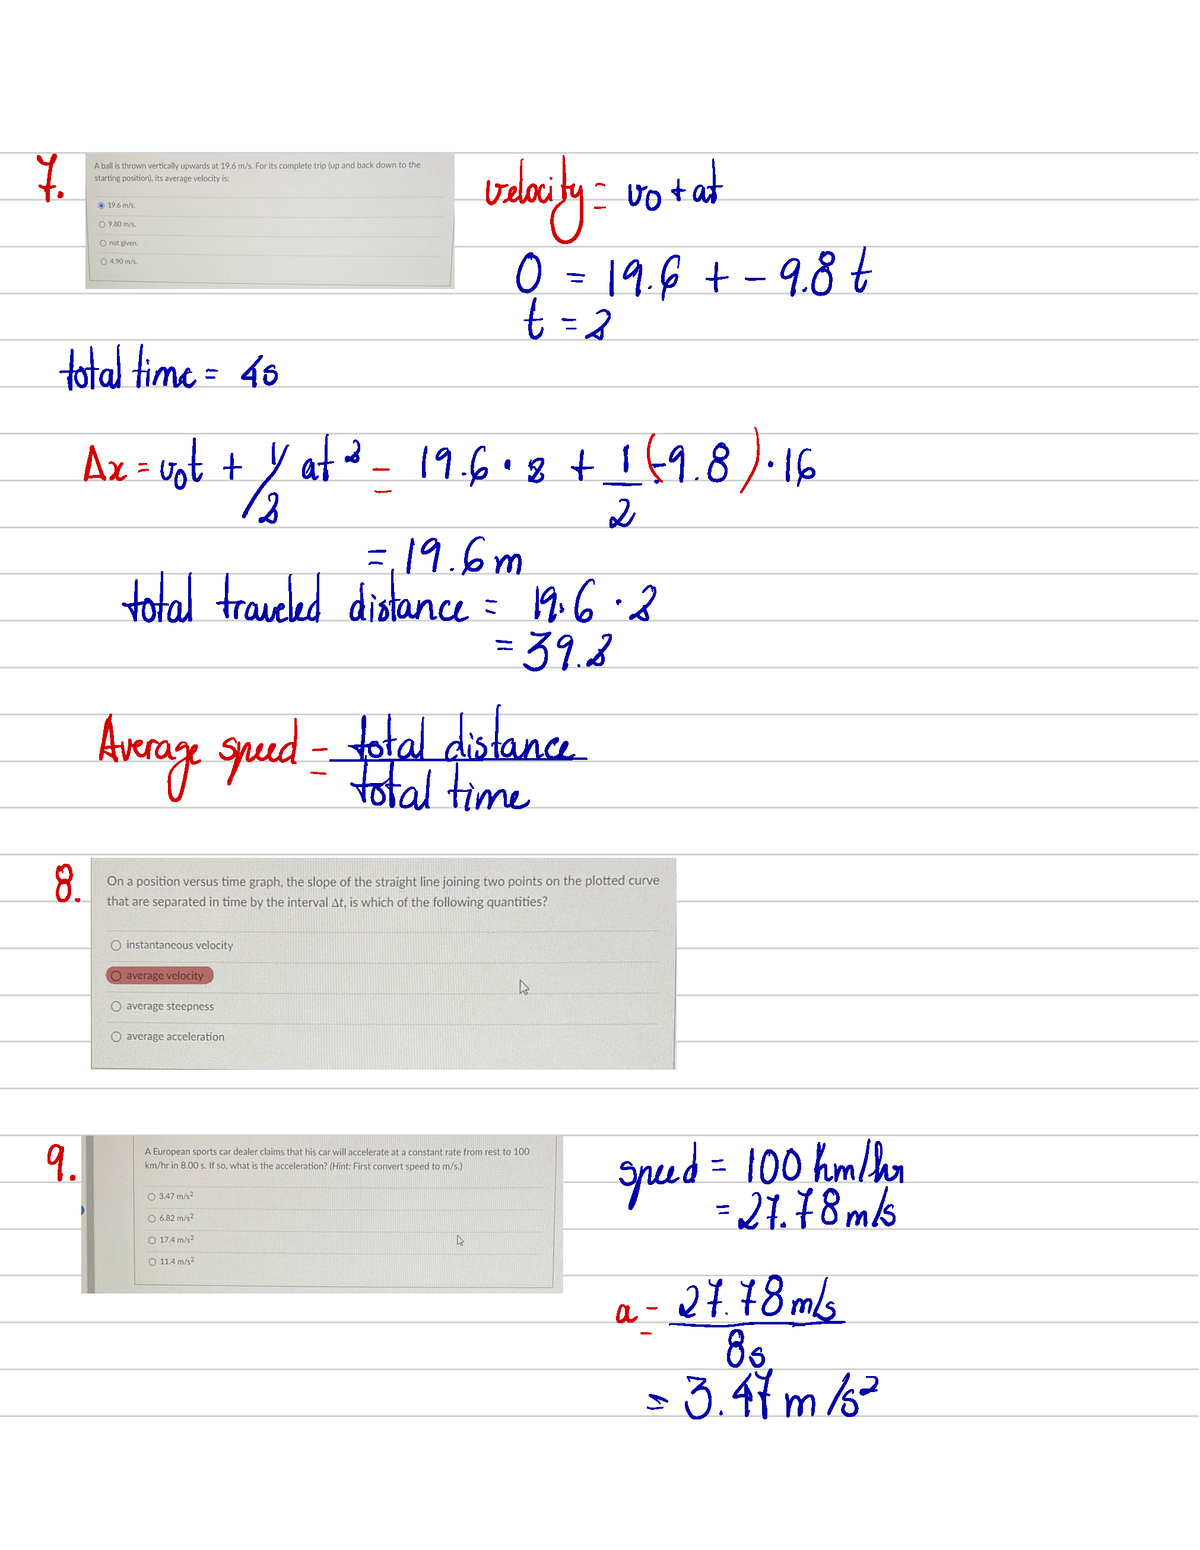 7.
A ball is thrown vertically upwards at 19.6 m/s. For its complete trip (up and back down to the
starting position), its average velocity is:
19.6 m/s.
9.80 m/s.
not given.
4.90 m/s.
velocity = v0 + at
0 = 19.6 + - 9.8 t
t = 2
total time = 4s
Δx = v0t + 1/2 at² = 19.6 · 2 + 1/2 (-9.8) · 16
= 19.6 m
total traveled distance = 19.6 · 2
= 39.2
Average speed = total distance / total time
8.
On a position versus time graph, the slope of the straight line joining two points on the plotted curve
that are separated in time by the interval Δt, is which of the following quantities?
instantaneous velocity
average velocity
average steepness
average acceleration
9.
A European sports car dealer claims that his car will accelerate at a constant rate from rest to 100
km/hr in 8.00 s. If so, what is the acceleration? (Hint: First convert speed to m/s.)
3.47 m/s²
6.82 m/s²
17.4 m/s²
11.4 m/s²
speed = 100 km/hr
= 27.78 m/s
a = 27.78 m/s / 8s
= 3.47 m/s²